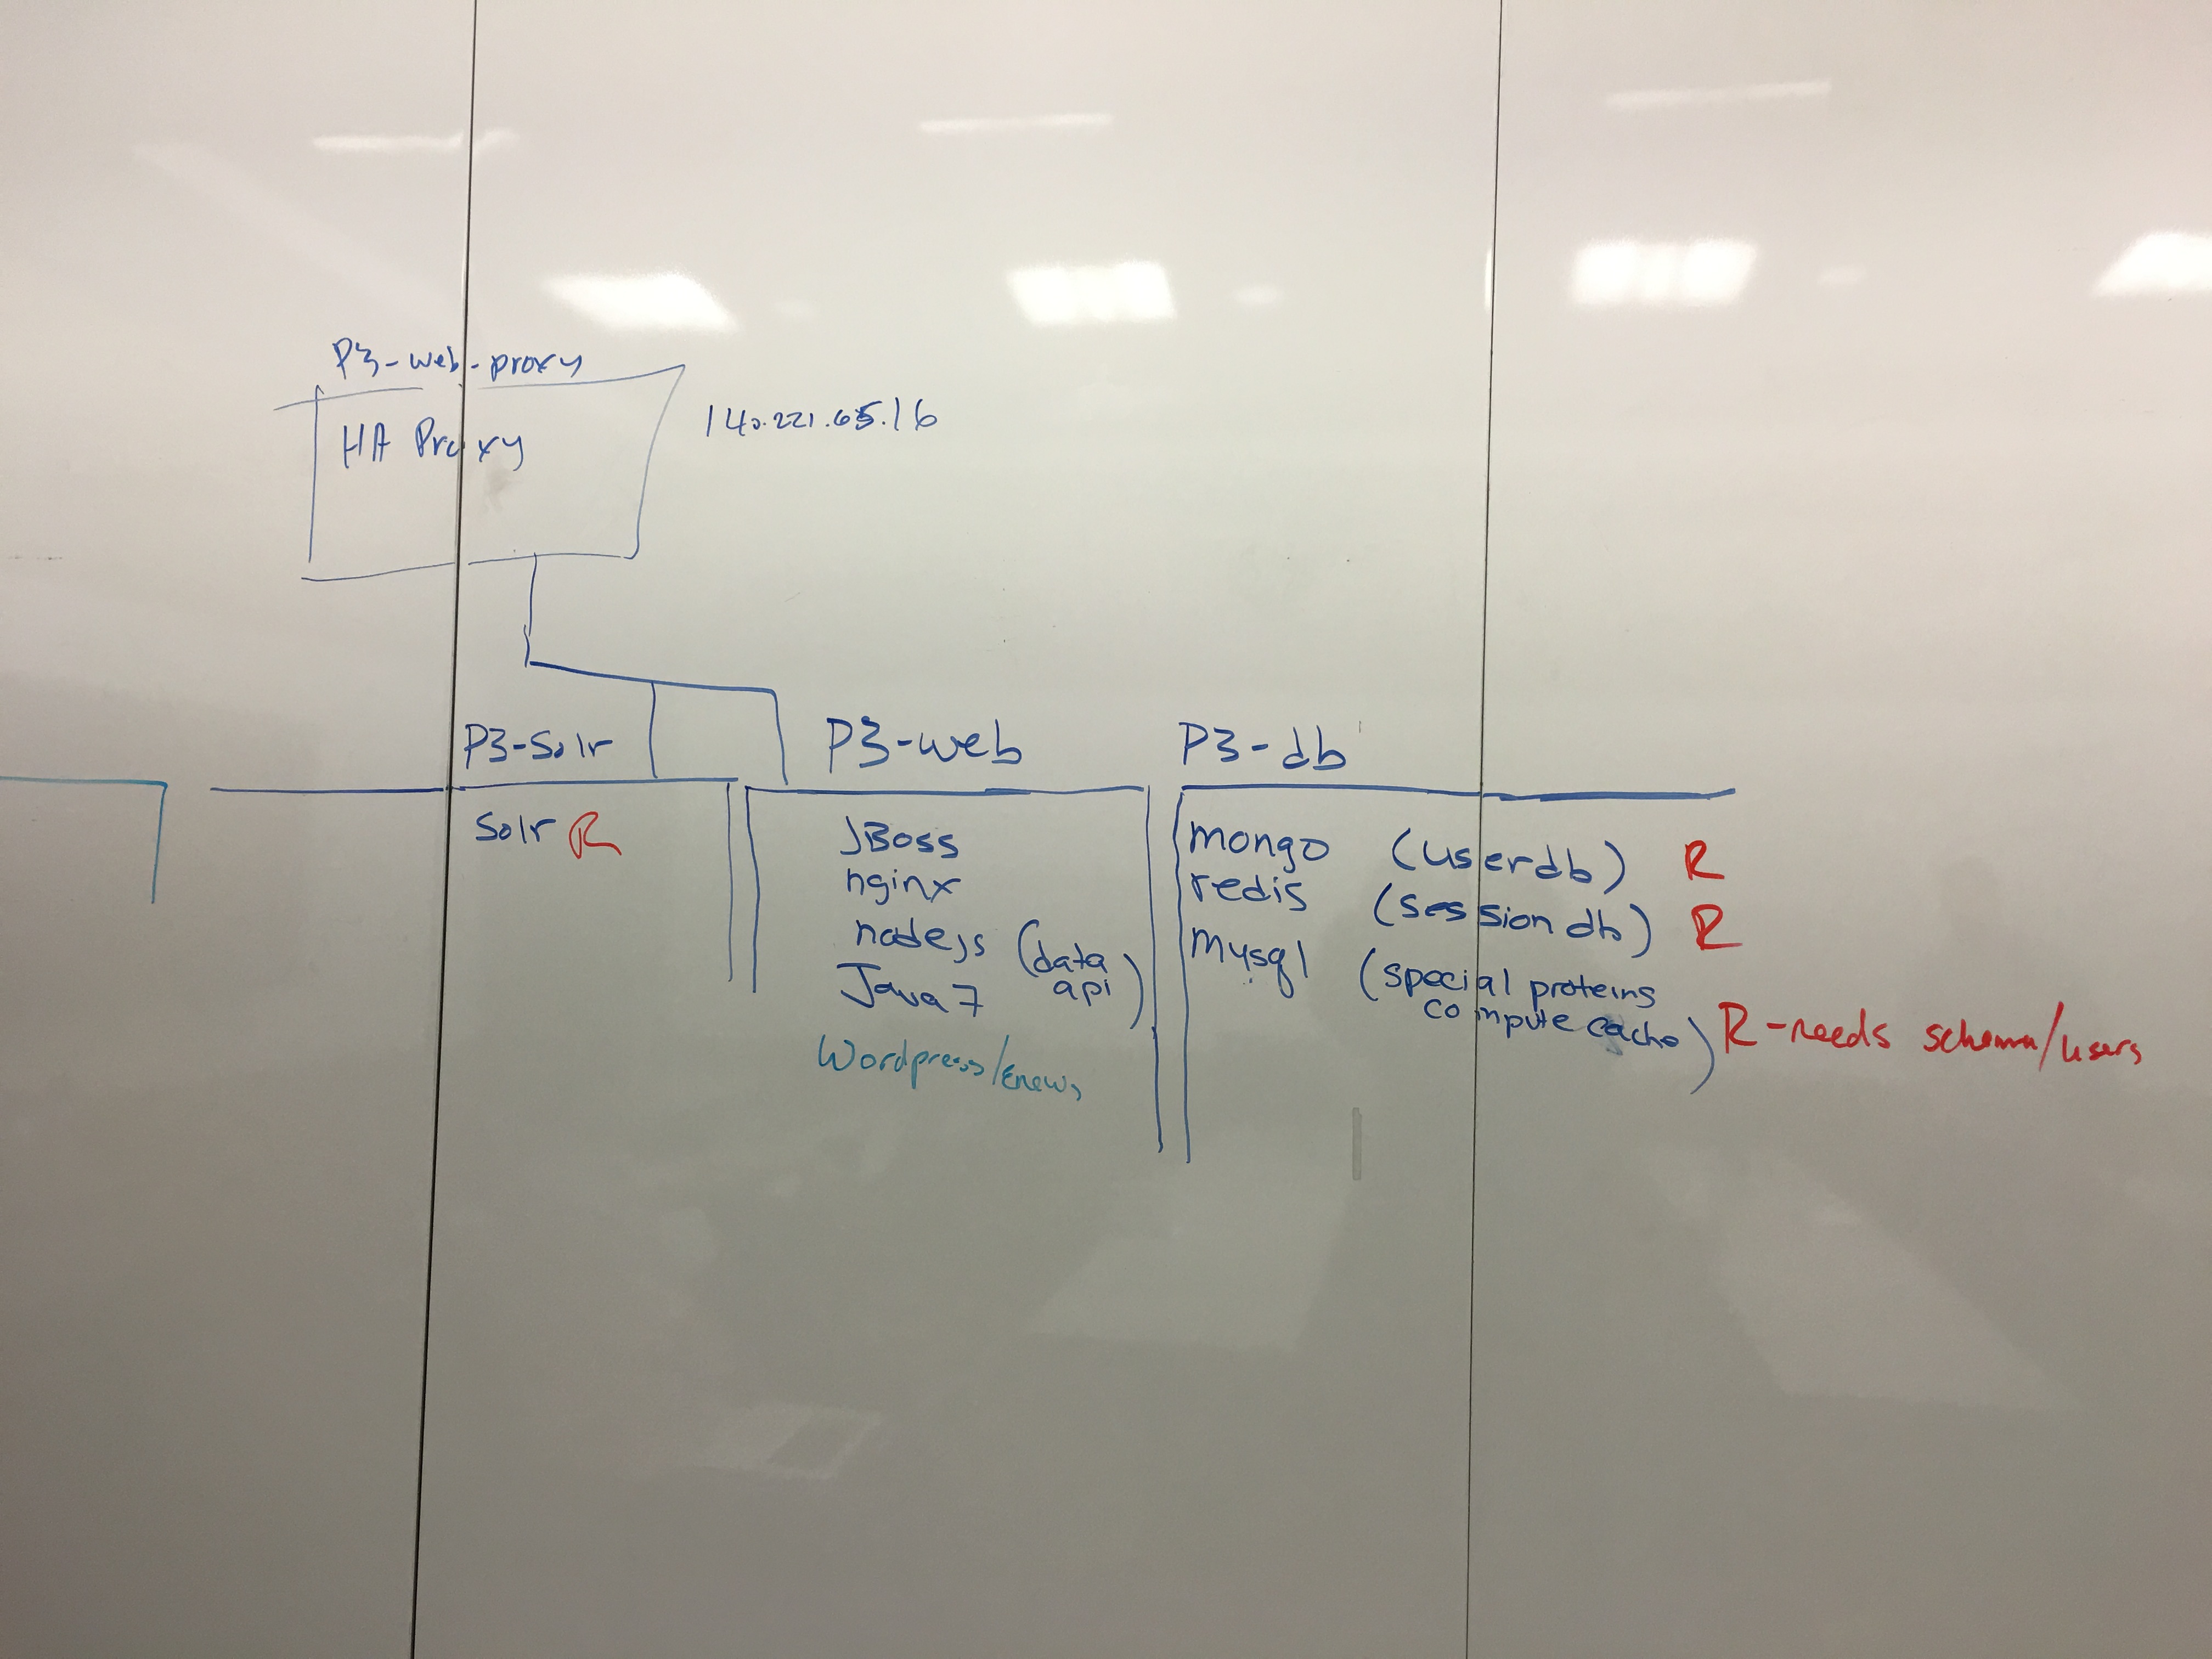 P3-web-proxy
HA Proxy
140.221.65.16
P3-Solr
Solr R
P3-web
JBoss
nginx
nodejs (data
api)
Java 7
Wordpress/Enews
P3-db
mongo (userdb) R
redis (session db) R
mysql (special proteins
compute cache) R-needs schema/users